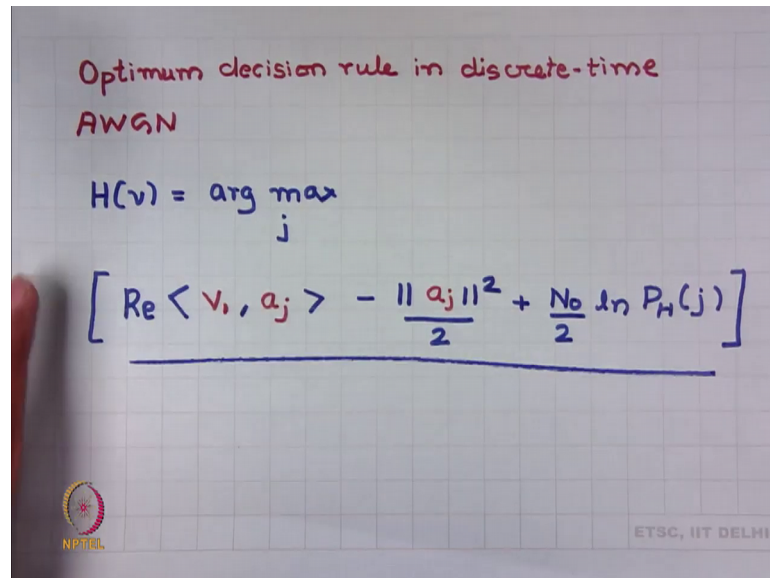 Optimum decision rule in discrete-time
AWGN
H(v) = arg max
j
[ Re < V₁, aⱼ > - ||aⱼ||²/2 + N₀/2 ln P_H(j) ]
NPTEL
ETSC, IIT DELHI